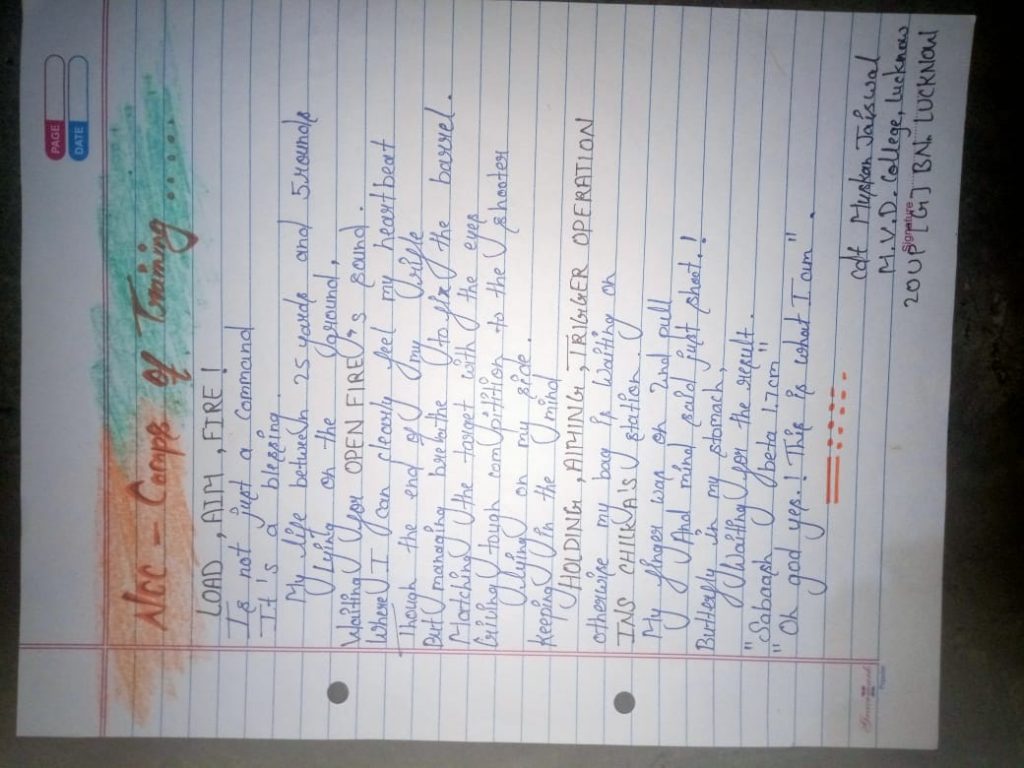 PAGE
DATE
Ncc - Camps of Training ......
LOAD, AIM, FIRE!
Is not just a command
It's a blessing.
My life between 25 yards and 5 rounds
lying on the ground,
Waiting for OPEN FIRE's sound.
Where I can clearly feel my heartbeat
Though the end of my rifle
But managing breathe to fix the barrel.
Matching the target with the eyes
Giving tough compitition to the shooter
lying on my side.
Keeping in the mind
HOLDING, AIMING, TRIGGER OPERATION
otherwise my bag is waiting on
INS CHILKA'S station.
My finger was on 2nd pull
And mind said just shoot!
Butterfly in my stomach,
Waiting for the result.
"Sabaash beta 1.7cm"
"Oh god yes! This is what I am".
cdt Muskan Jaiswal
M.V.D. College, Lucknow
Signature
20UP [G] BN. LUCKNOW